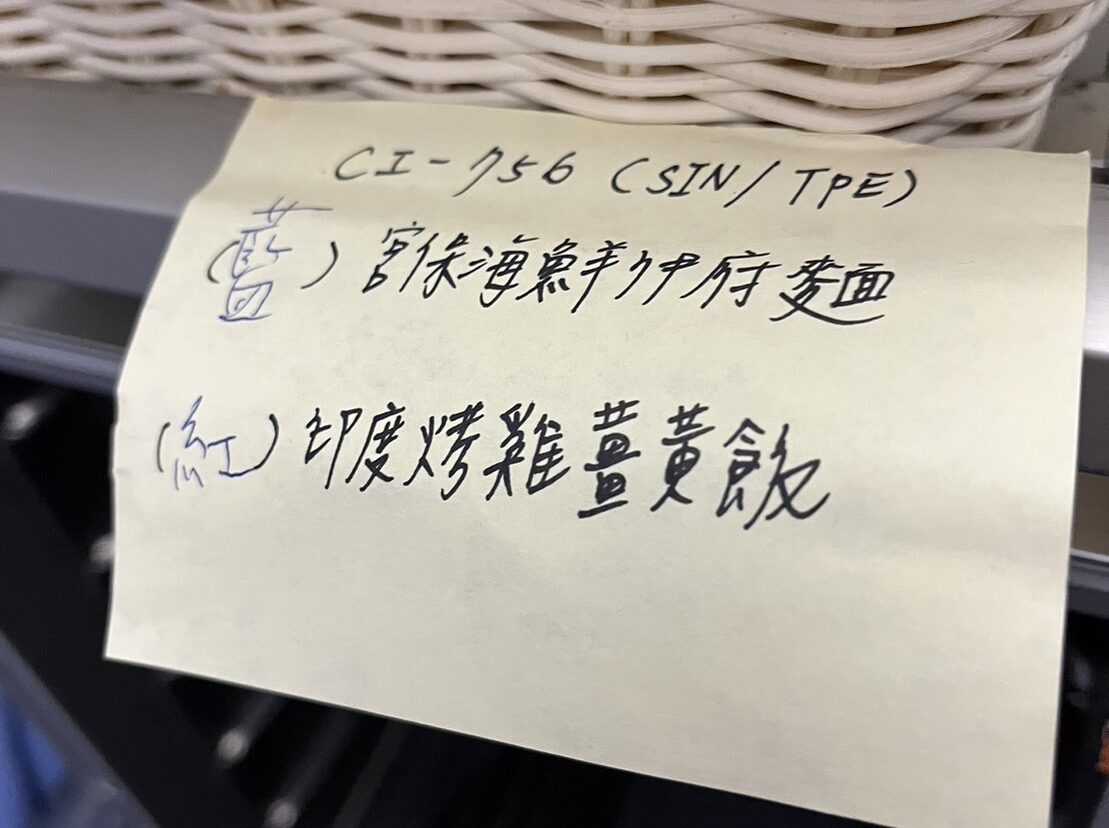 CI-756 (SIN/TPE)
(藍) 宮保海鮮伊府麵
(紅) 印度烤雞薑黃飯